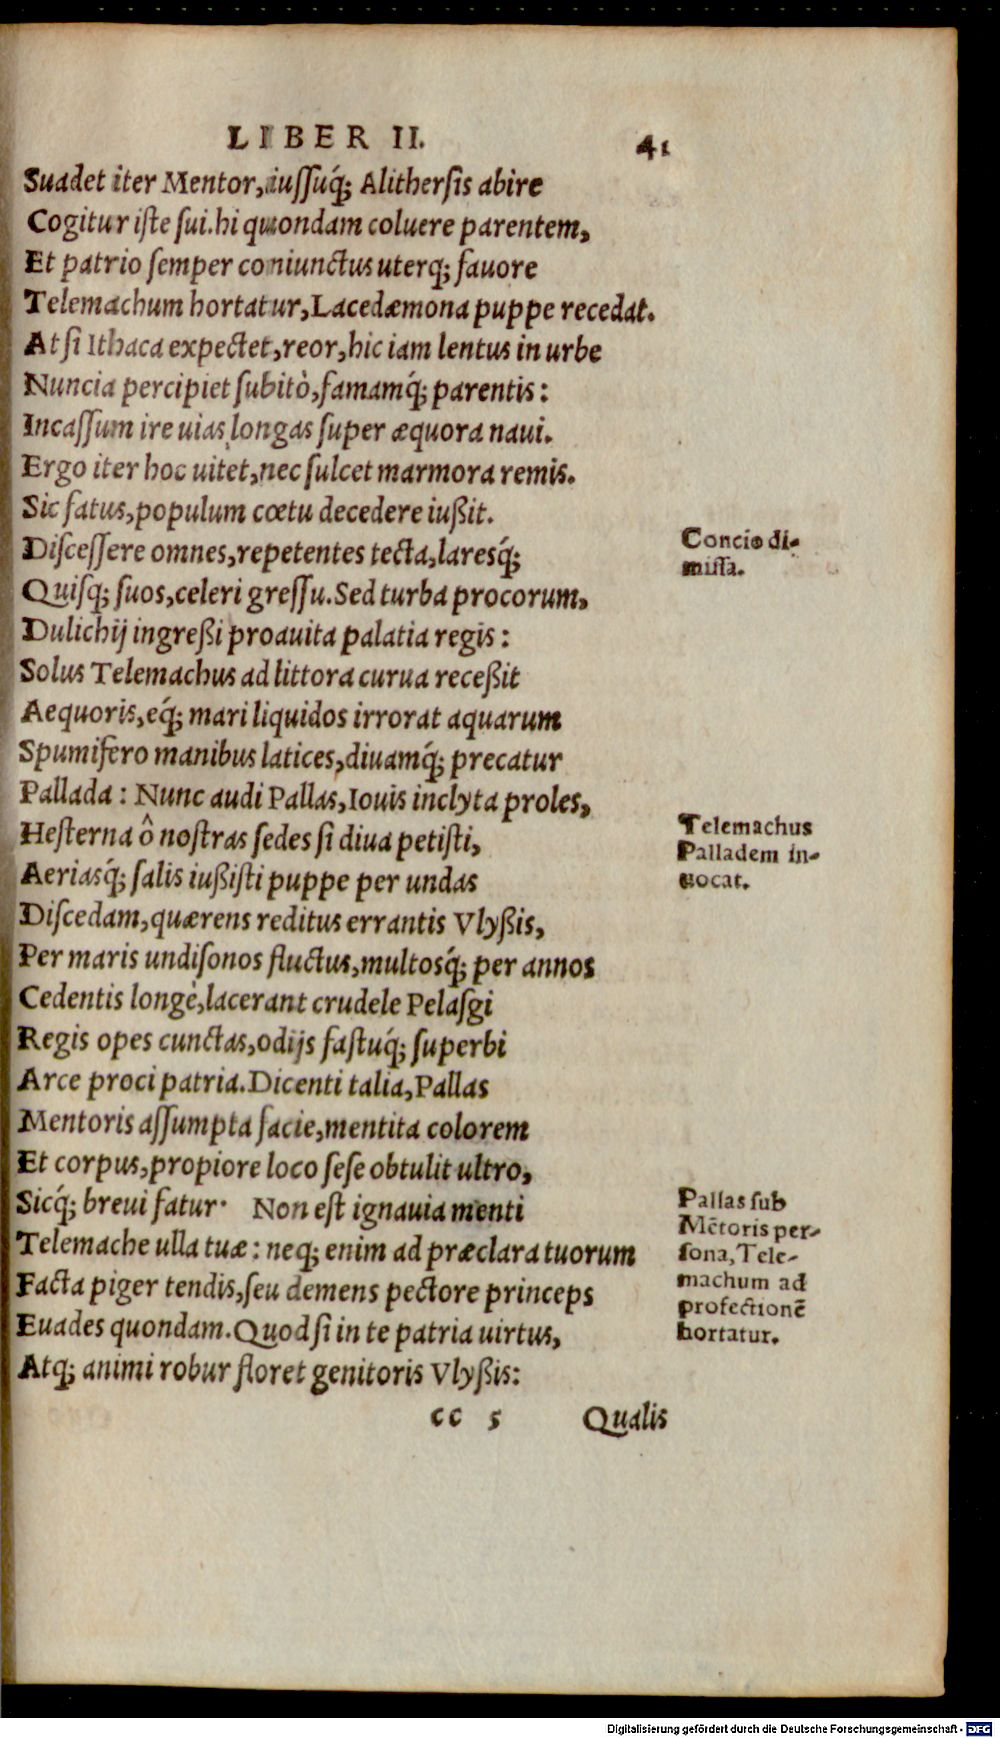 LIBER II. 41
Suadet iter Mentor, iussuq́; Alithersis abire
Cogitur iste sui. hi quondam coluere parentem,
Et patrio semper coniunctus uterq; fauore
Telemachum hortatur, Lacedæmona puppe recedat.
At si Ithaca expectet, reor, hic iam lentus in urbe
Nuncia percipiet subitò, famamq́; parentis:
Incassum ire uias longas super æquora naui.
Ergo iter hoc uitet, nec sulcet marmora remis.
Sic fatus, populum cœtu decedere iußit.
Discessere omnes, repetentes tecta, laresq́;
Quisq; suos, celeri gressu. Sed turba procorum,
Dulichij ingreßi proauita palatia regis:
Solus Telemachus ad littora curua receßit
Aequoris, eq́; mari liquidos irrorat aquarum
Spumifero manibus latices, diuamq́; precatur
Pallada: Nunc audi Pallas, Iouis inclyta proles,
Hesterna ô nostras sedes si diua petisti,
Aeriasq́; salis iußisti puppe per undas
Discedam, quærens reditus errantis Vlyßis,
Per maris undisonos fluctus, multosq́; per annos
Cedentis longè, lacerant crudele Pelasgi
Regis opes cunctas, odijs fastuq́; superbi
Arce proci patria. Dicenti talia, Pallas
Mentoris assumpta facie, mentita colorem
Et corpus, propiore loco sese obtulit ultro,
Sicq́; breui fatur. Non est ignauia menti
Telemache ulla tuæ: neq; enim ad præclara tuorum
Facta piger tendis, seu demens pectore princeps
Euades quondam. Quod si in te patria uirtus,
Atq; animi robur floret genitoris Vlyßis:
cc 5 Qualis
Concio di-
missa.
Telemachus
Palladem in-
uocat.
Pallas sub
Mẽtoris per-
sona, Tele-
machum ad
profectionẽ
hortatur.
Digitalisierung gefördert durch die Deutsche Forschungsgemeinschaft - DFG